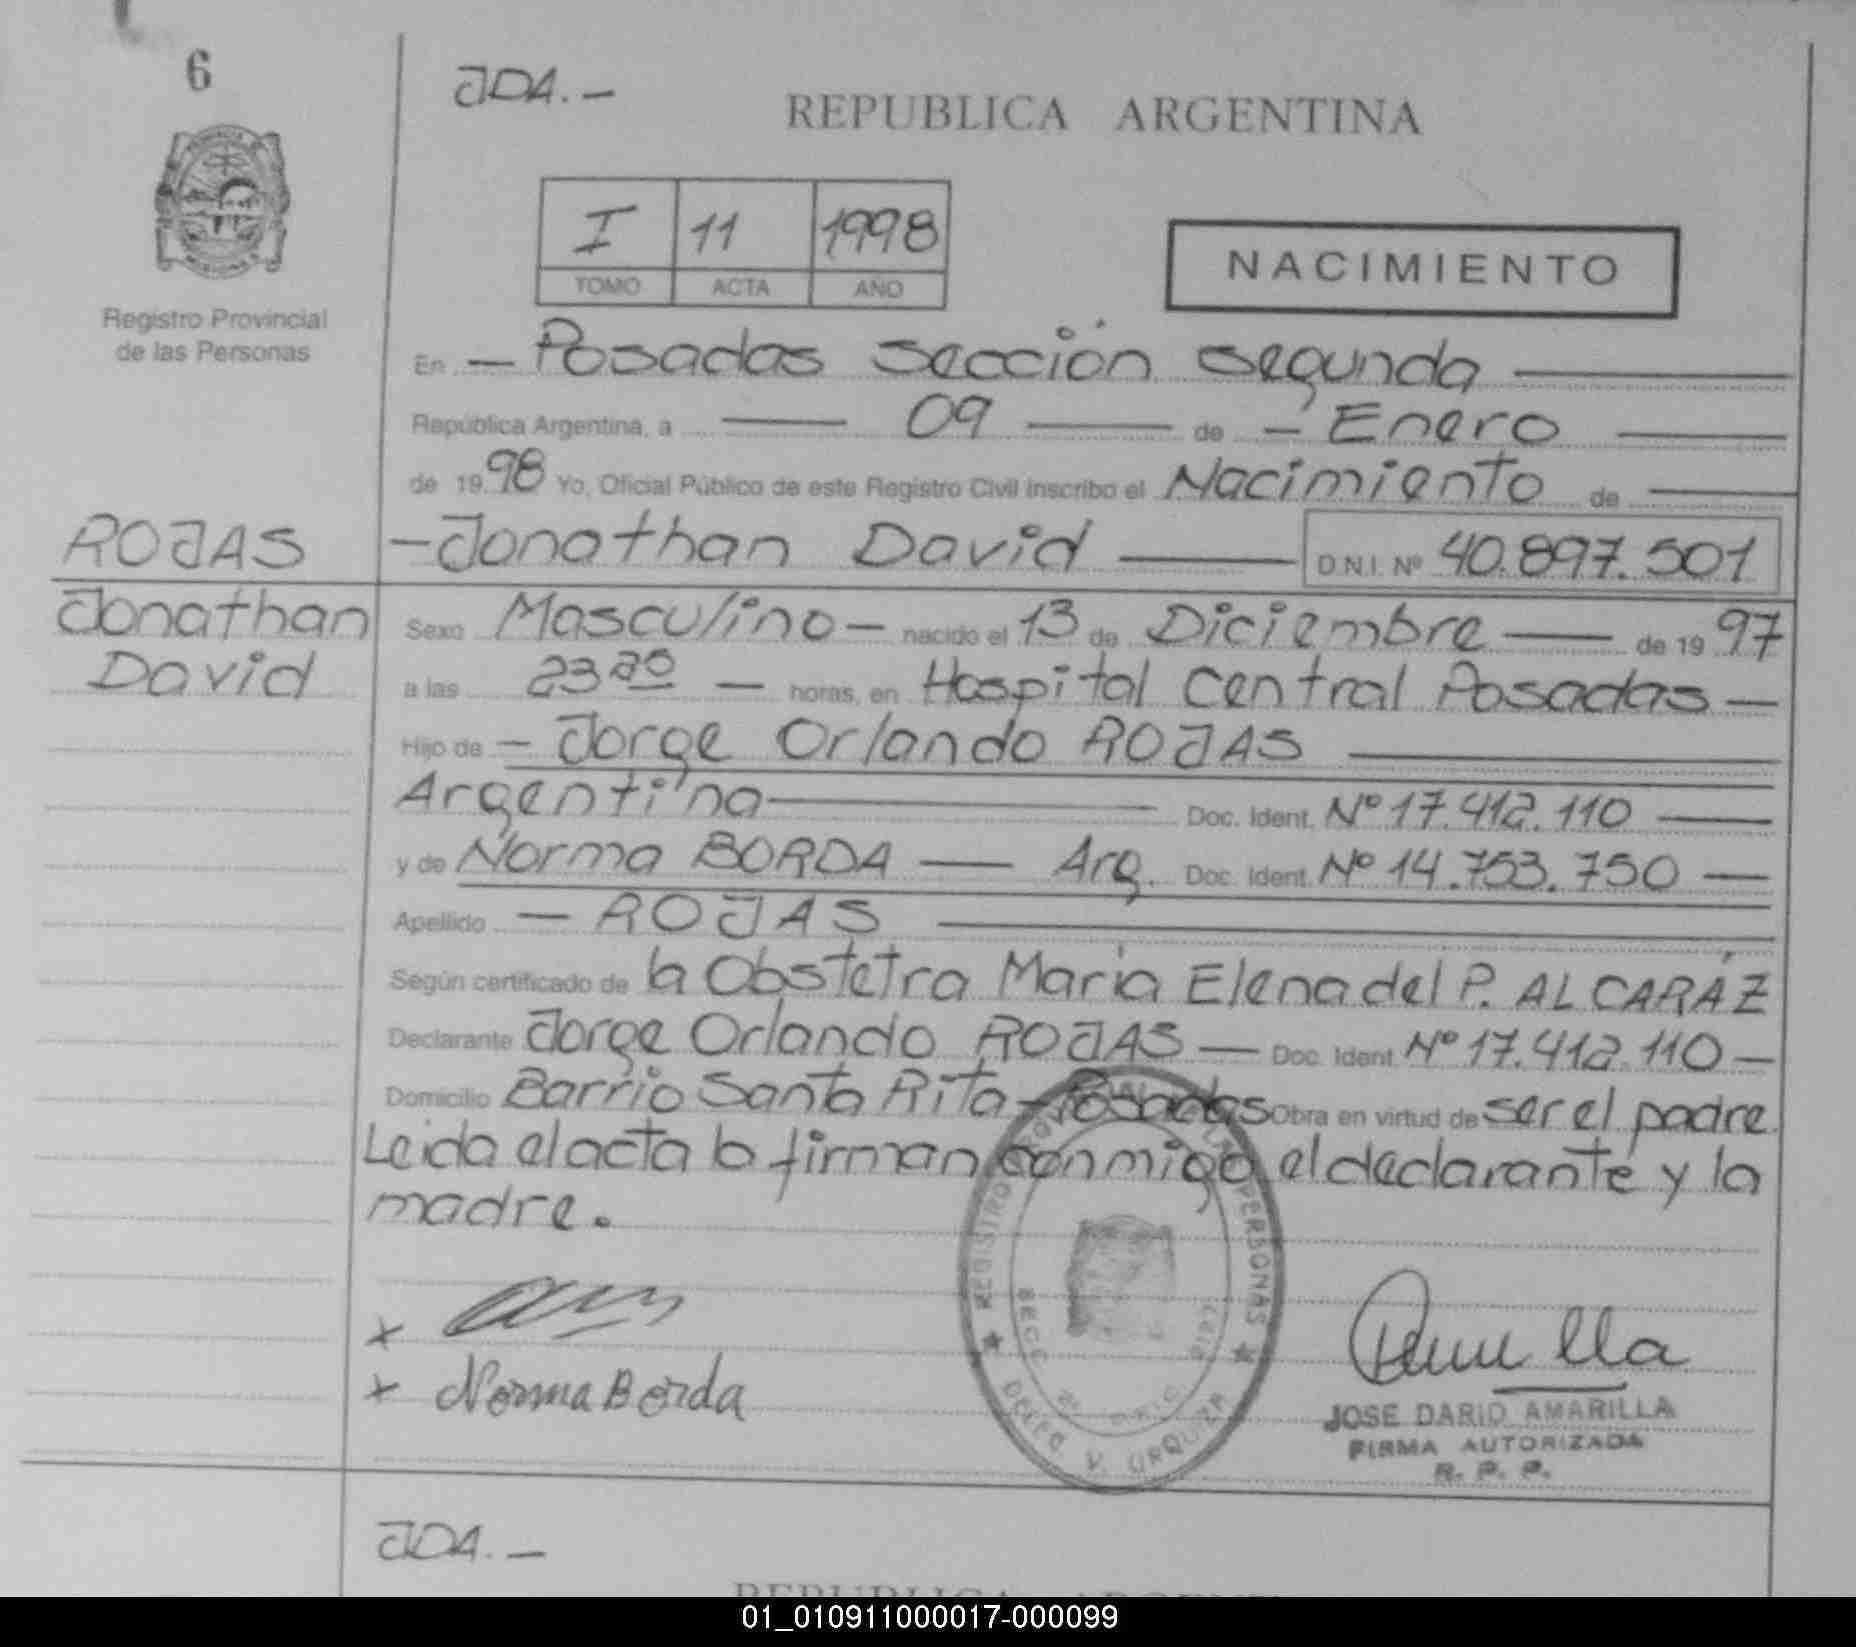 6
JDA.-
REPUBLICA ARGENTINA
I 11 1998
TOMO ACTA AÑO
NACIMIENTO
Registro Provincial
de las Personas
En - Posadas sección segunda
República Argentina, a 09 de - Enero
de 1998 Yo, Oficial Público de este Registro Civil inscribo el Nacimiento de
ROJAS
Jonathan
David
- Jonathan David D.N.I. Nº 40.897.501
Sexo Masculino - nacido el 13 de Diciembre de 1997
a las 23 horas, en Hospital Central Posadas -
Hijo de - Jorge Orlando ROJAS
Argentina Doc. Ident. Nº 17.412.110
y de Norma BORDA Arg. Doc. Ident. Nº 14.753.750 -
Apellido - ROJAS
Según certificado de la Obstetra María Elena del P. ALCARÁZ
Declarante Jorge Orlando ROJAS - Doc. Ident. Nº 17.412.110 -
Domicilio Barrio Santa Rita - Posadas Obra en virtud de ser el padre.
Leida el acta la firman conmigo el declarante y la
madre.
x
x Norma Borda
REGISTRO PERSONAS
URQUIZA
JOSE DARIO AMARILLA
FIRMA AUTORIZADA
R. P. P.
JDA.-
REPUBLICA ARGENTINA
01_010911000017-000099